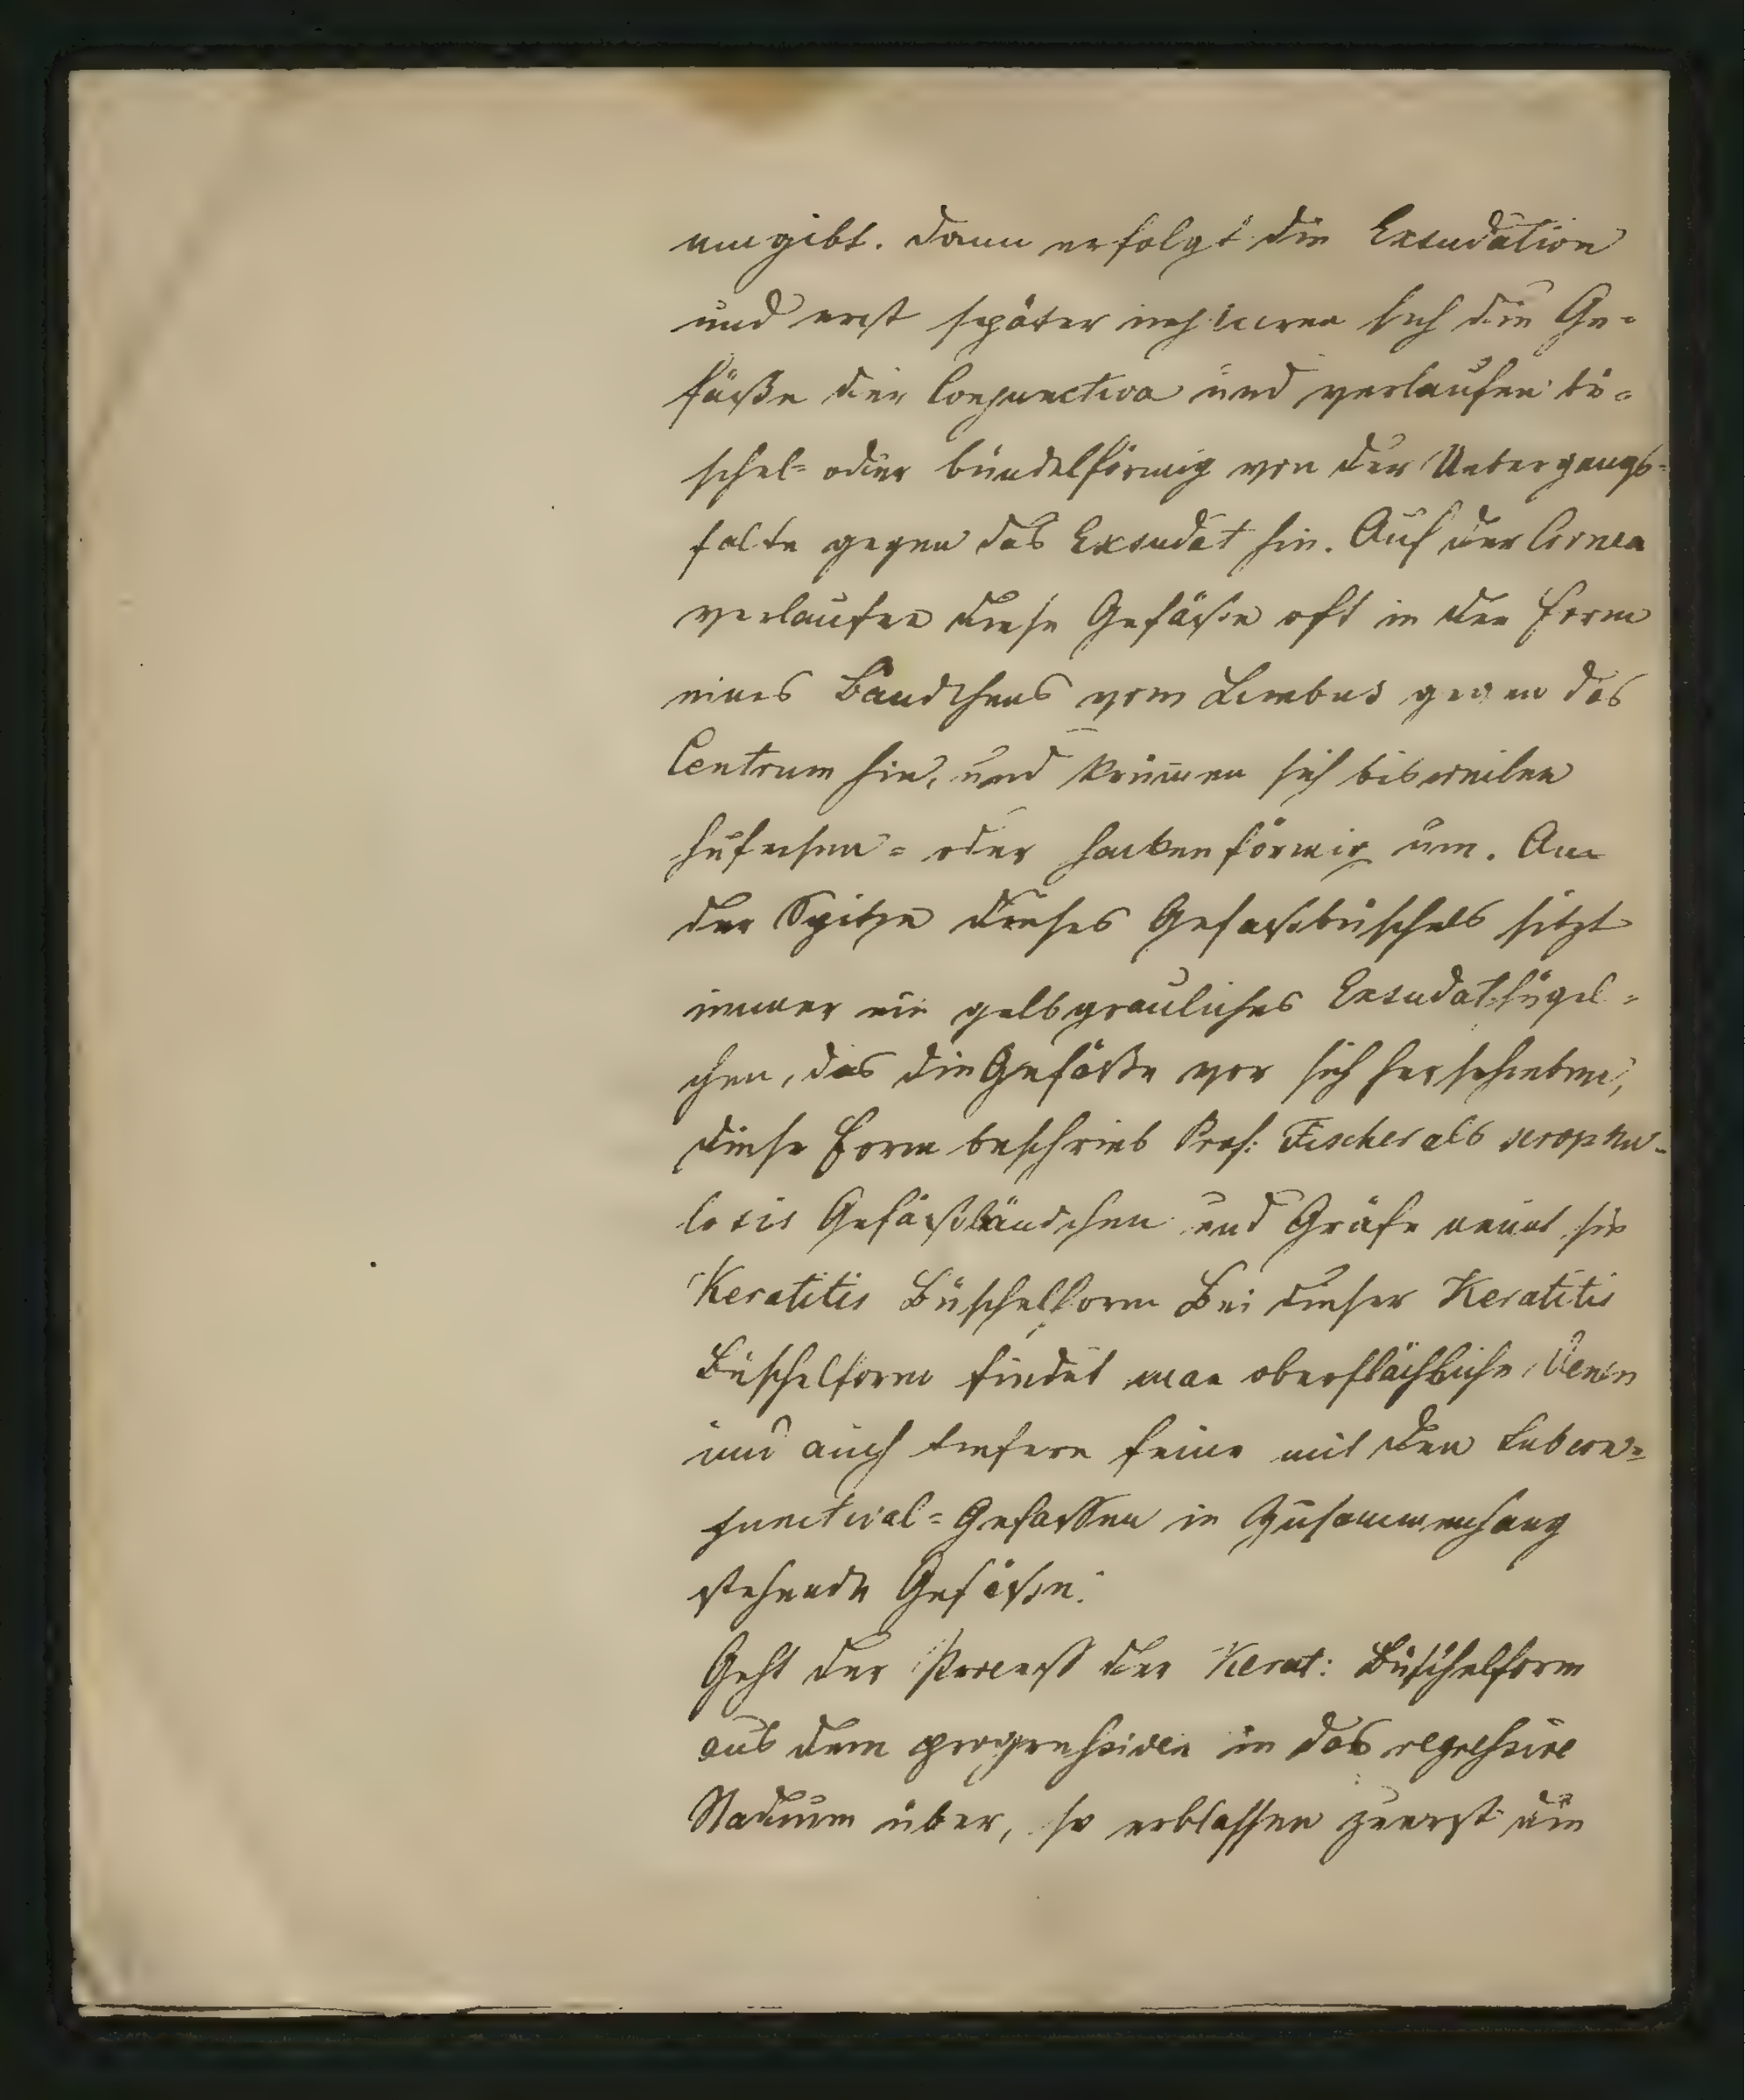 umgibt. Dann erfolgt die Exsudation
und erst später injiciren sich die Ge=
fäße der Conjunctiva und verlaufen bü=
schel= oder bündelförmig von der Uebergangs=
falte gegen das Exsudat hin. Auf der Cornea
verlaufen diese Gefäße oft in der Form
eines Bändchens vom Limbus gegen das
Centrum hin, und krümen sich bisweilen
hufeisen= oder hackenförmig um. An
der Spitze dieses Gefäßbüschels sitzt
immer ein gelbgrauliches Exsudathügel=
chen, das die Gefäße vor sich herschieben,
diese Form beschrieb Prof: Fischer als scrophu=
loses Gefäßbändchen und Gräfe nennt sie
Keratitis Büschelform Bei dieser Keratitis
Büschelform findet man oberflächliche Venen
und auch tiefere feine mit den Subcon=
junctival=Gefässen in Zusammenhang
stehende Gefäße.
Geht der Proceß der Kerat: Büschelform
aus dem progressiven in das regressive
Stadium über, so erblassen zuerst die